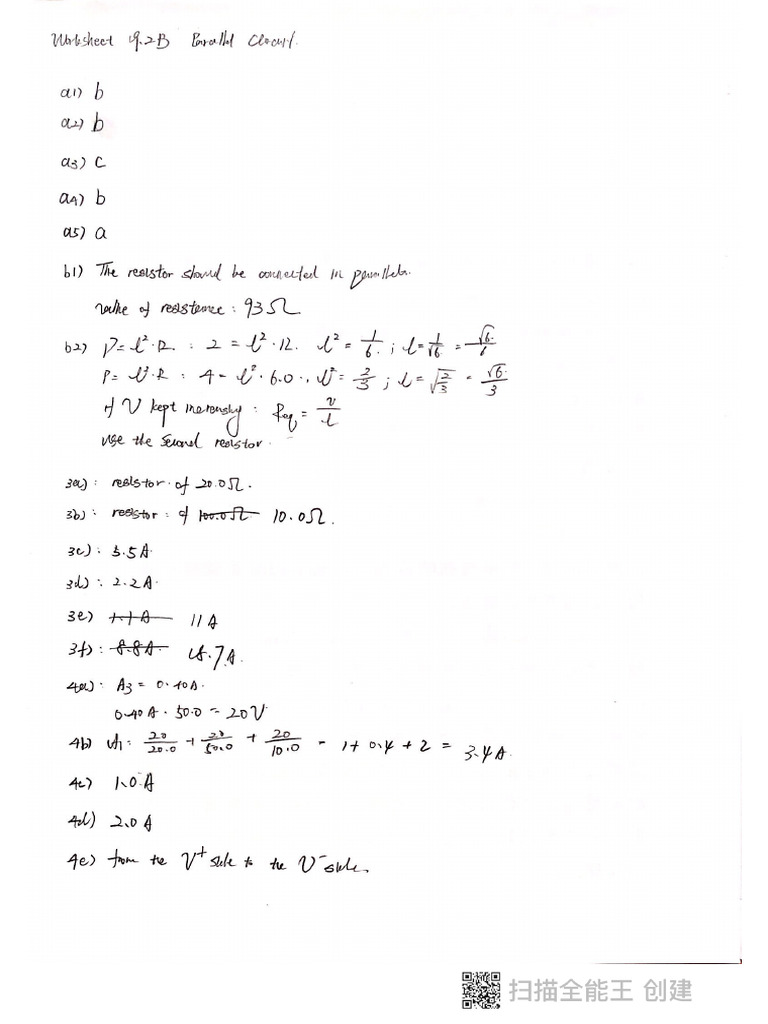 Worksheet 19.2B Parallel Circuit.
a1) b
a2) b
a3) c
a4) b
a5) a
b1) The resistor should be connected in
value of resistance: 93Ω
b2) P=I²·R : 2 = I²·12. I² = 1/6 ; I = 1/√6 = √6/6
P= I²·R : 4 = I²·6.0 , I² = 2/3 ; I = √(2/3) = √6/3
if V kept : Req = V/I
use the second resistor.
3a): resistor of 20.0Ω.
3b): resistor of 100.0Ω 10.0Ω.
3c): 5.5A
3d): 2.2A.
3e) 1.1A 11A
3f): 8.8A. 18.7A.
4a): A3 = 0.40A.
0.40A · 50.0 = 20V
4b) 20/20.0 + 20/50.0 + 20/10.0 = 1+0.4+2 = 3.4A.
4c) 1.0A
4d) 2.0A
4e) from the V⁺ side to the V⁻ side.
扫描全能王 创建